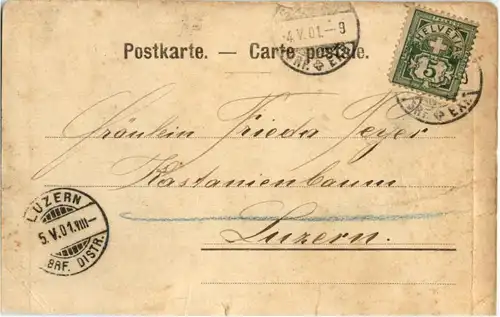 4.V.01.-9
BRF. EXP.
HELVETIA
5
BRF. EXP.
Postkarte. — Carte postale.
Fräulein Frieda Jeyer
Kastanienbaum
Luzern.
LUZERN
5.V.01.VIII-
BRF. DISTR.